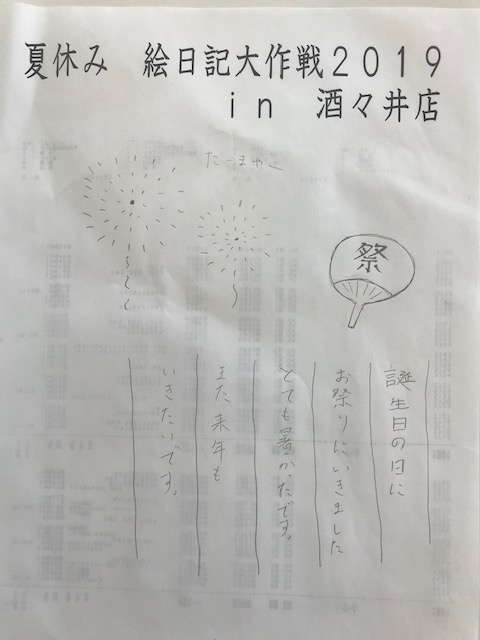 夏休み　絵日記大作戦２０１９
ｉｎ　酒々井店
たーまやー
祭
誕生日の日に
お祭りにいきました
とても暑かったです。
また来年も
いきたいです。